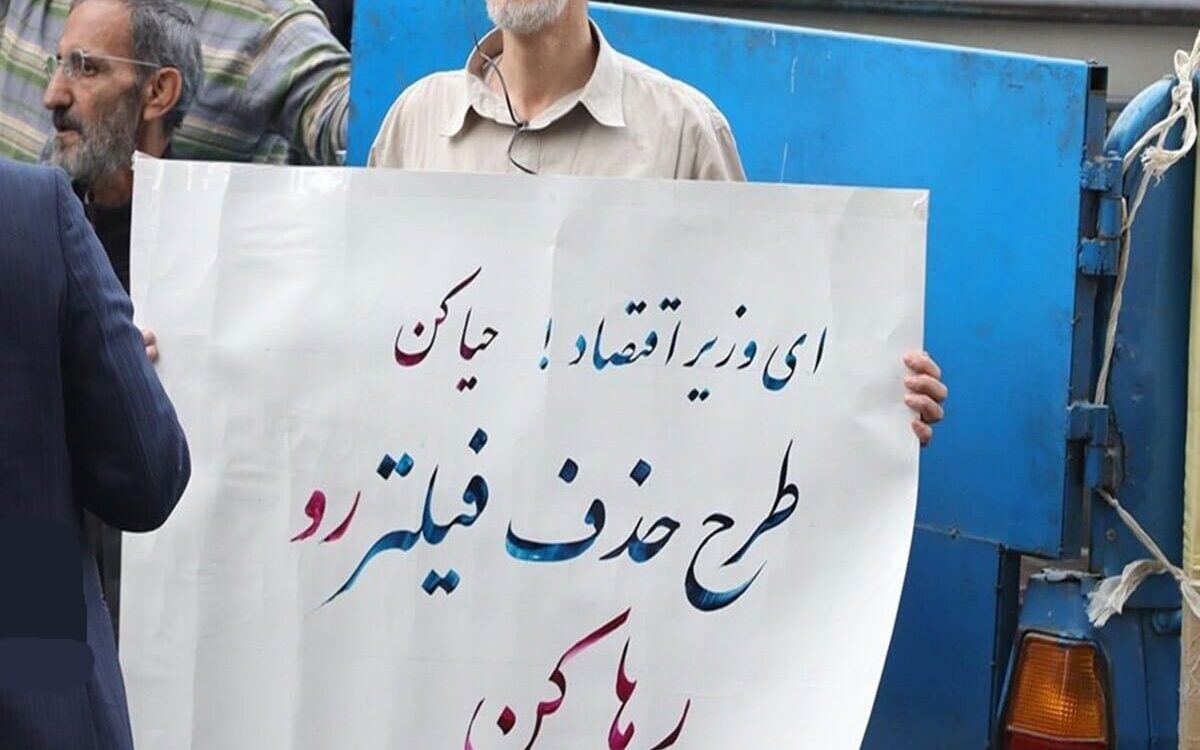 ای وزیر اقتصاد ! حیا کن
طرح حذف فیلتر رو
رها کن